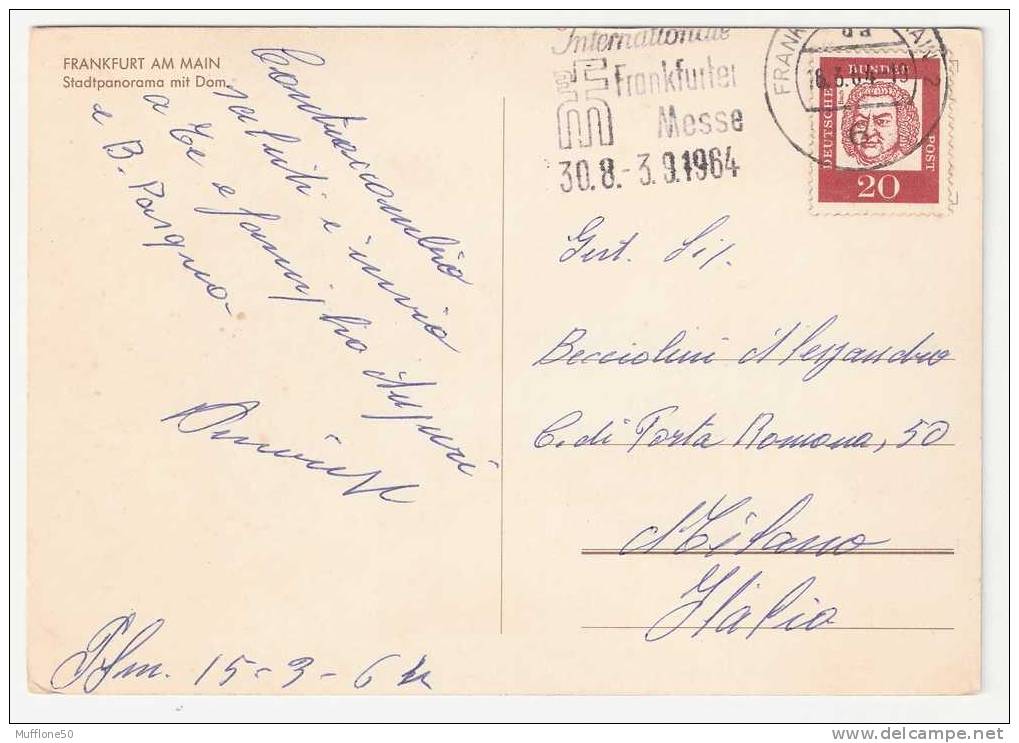 FRANKFURT AM MAIN
Stadtpanorama mit Dom
Contraccambio
saluti e invio
a Te e famiglia Auguri
e B. Pasqua
Ffm. 15-3-64
Internationale
Frankfurter
Messe
30.8.-3.9.1964
FRANK AIN 2
18.3.64-19
DEUTSCHE BUNDES POST
20
Gert. Sig.
Becciolini Alessandro
C. di Porta Romana, 50
Milano
Italia
Mufflone50
www.delcampe.net